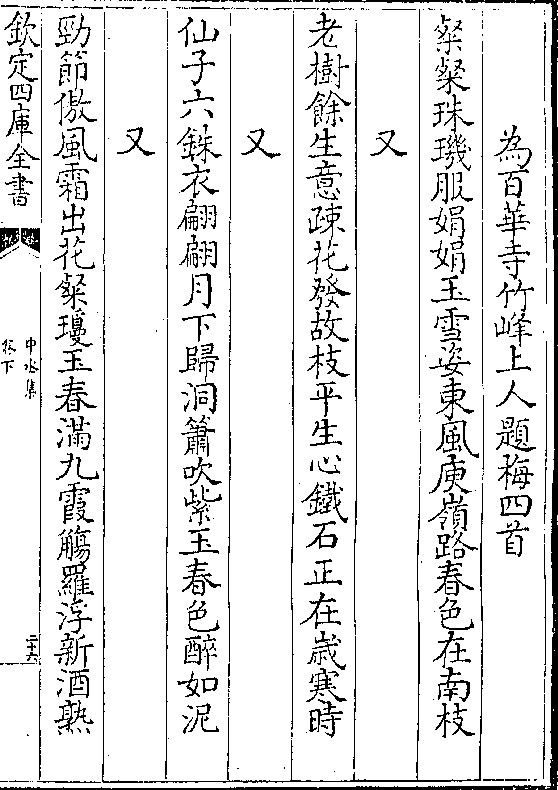 為百華寺竹峰上人題梅四首
粲粲珠璣服娟娟玉雪姿東風庾嶺路春色在南枝
又
老樹餘生意疎花發故枝平生心鐵石正在歲寒時
又
仙子六銖衣翩翩月下歸洞簫吹紫玉春色醉如泥
又
勁節傲風霜出花粲瓊玉春滿九霞觴羅浮新酒熟
欽定四庫全書
中丞集
卷下
二十六